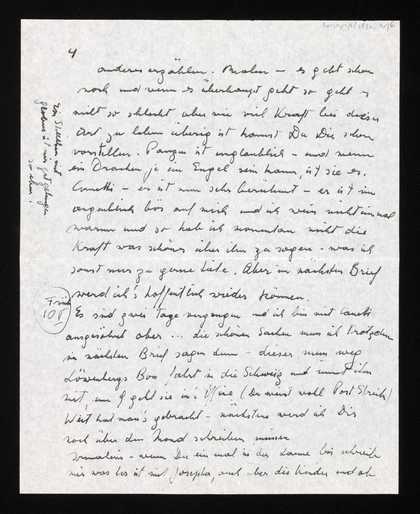 4
anderes erzählen. Malen – es geht schon
noch und wenn es überhaupt geht so geht's
nicht so schlecht aber wie viel Kraft bei dieser
Art zu leben übrig ist kannst Du Dir schon
vorstellen. ist unglaublich – und wenn
ein Drachen je ein Engel sein kann, ist sie es.
Canetti – er ist nun sehr berühmt – er ist
unglaublich bös auf mich und ich weiss nicht einmal
warum und so hab ich momentan nicht die
Kraft was schönes über ihn zu sagen – was ich
sonst nur zu gerne täte. Aber im nächsten Brief
werd ich's hoffentlich wieder können.
Es sind zwei Tage vergangen und ich bin mit Canetti
ausgesöhnt aber ... die schönen Sachen muss ich trotzdem
im nächsten Brief sagen denn – dieser muss weg
Löwenbergs Bou fährt in die Schweiz und nimmt ihn
mit, um 9 geht sie in's Office (Du weisst wohl Post Streik)
Weit hat man's gebracht – nächstens werd ich Dir
noch über den Mond schreiben müssen
– wenn Du ein mal in der Laune bist schreib
mir was los ist mit Josepha, auch über die Kinder und ob
von
mir gut gelungen
so eben!
108